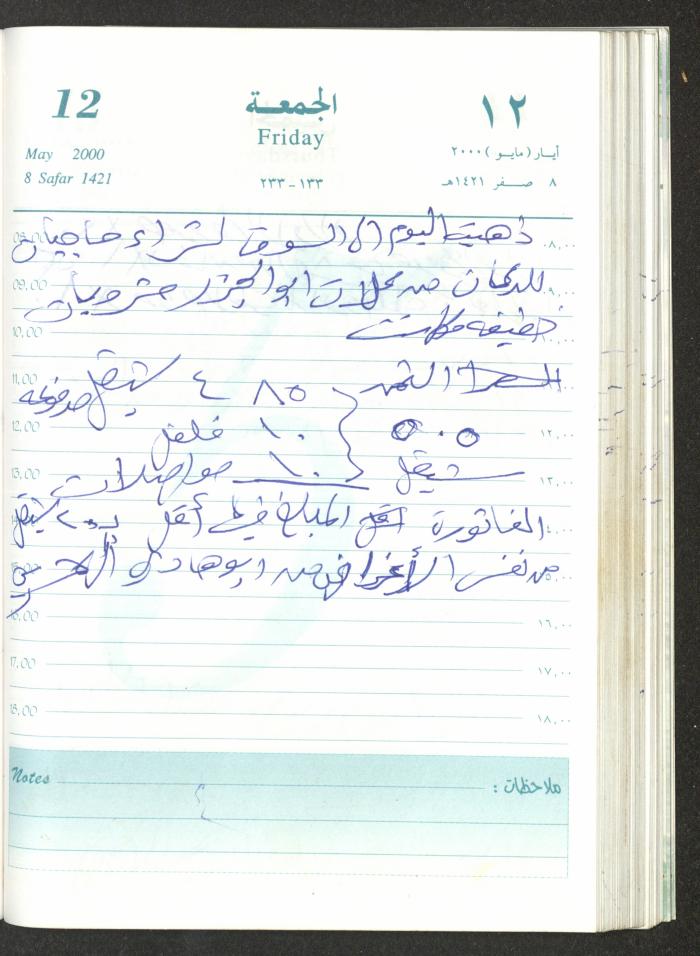 12 الجمعة ١٢
Friday
May 2000 أيار (مايو) ٢٠٠٠
8 Safar 1421 ١٣٣-٢٣٣ ٨ صفر ١٤٢١هـ
08.00 ذهبت اليوم الى السوق لشراء حاجيات ٨,٠٠
09.00 للدكان من محلات ابو الجزر مشروبات ٩,٠٠
10.00 خفيفه ١٠,٠٠
11.00 الثمن ٤٨٥ شيقل مدفوعه
12.00 ٥٠٥ ١٠ فلفل ١٢,٠٠
13.00 شيقل ١٠ مواصلات ١٣,٠٠
الفاتورة المبلغ فيها أقل شيقل ١٤,٠٠
من نفس الأغراض من ابو هادي ١٥,٠٠
16.00 ١٦,٠٠
17.00 ١٧,٠٠
18.00 ١٨,٠٠
Notes ملاحظات :